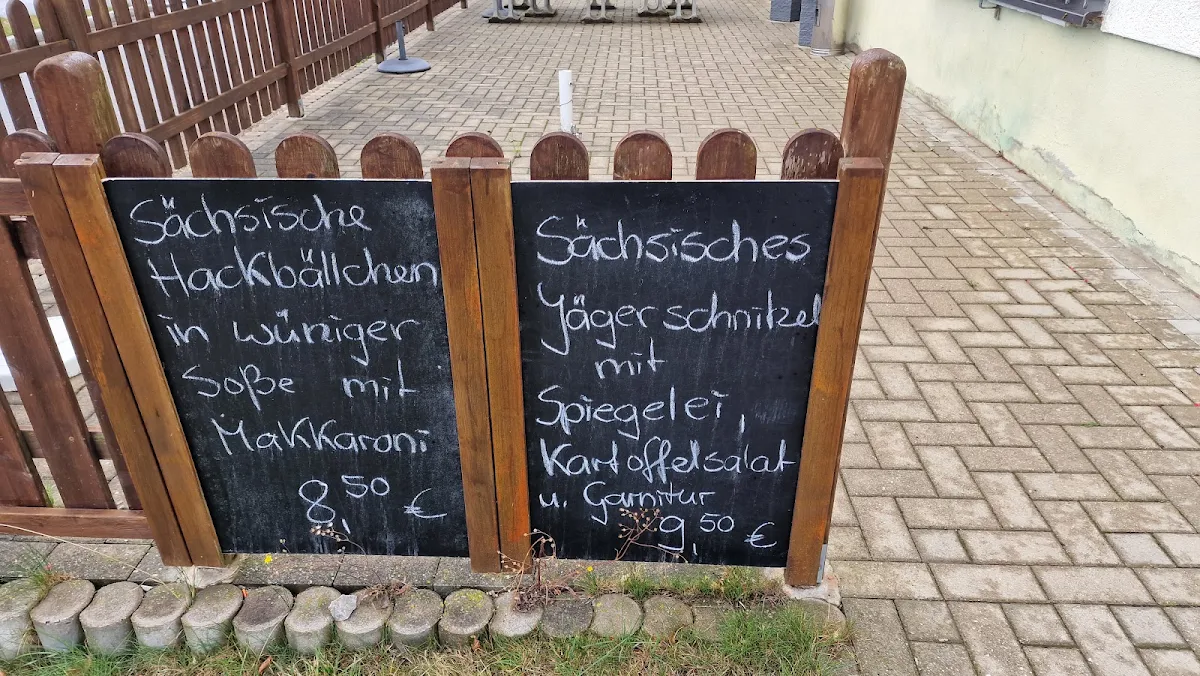 Sächsische
Hackbällchen
in würziger
Soße mit
Makkaroni
8,50 €
Sächsisches
Jägerschnitzel
mit
Spiegelei,
Kartoffelsalat
u. Garnitur
9,50 €